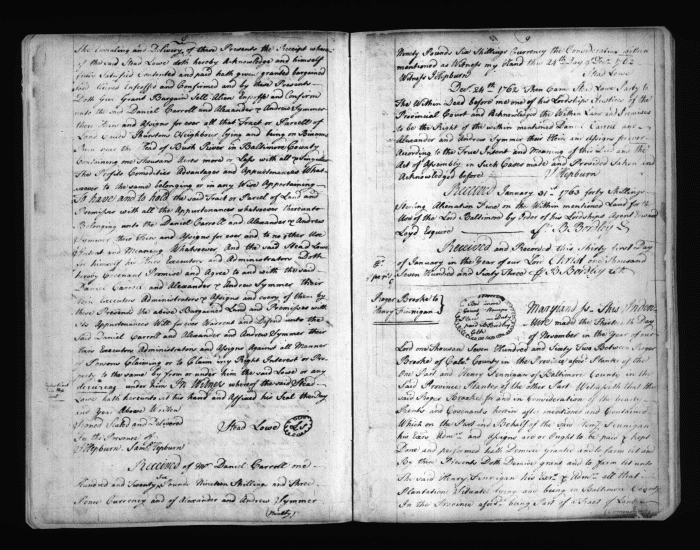 the Ensealing and Delivery of these Presents the Receipt where
of the said Lowe doth hereby Acknowledge and himself
fully Satisfied Contented and paid hath given granted bargained
Sold Aliened Enfeoffed and Confirmed and by these Presents
Doth Give Grant Bargain Sell Alien Enfeoff and Confirm
unto the said Daniel Carroll and Alexander & Andrew Symmer
their Heirs and Assigns for ever all that Tract or Parcell of
Land Called Thurstons Neighbour lying and being on Binams
Run near the Head of Bush River in Baltimore County
Containing one Thousand Acres more or Less with all & Singular
The Profits Comodities Advantages and Appurtenances What
soever to the same belonging or in any Wise Appertaining
To have and to hold the said Tract or Parcel of Land and
Premises with all the Appurtenances whatsoever thereunto
Belonging unto the Daniel Carroll and Alexander & Andrew
Symmer their Heirs and Assigns for ever and to no other Use
Intent and Meaning Whatsoever, And the said Stead Lowe
for himself his Heirs Executors and Administrators Doth
hereby Covenant Promise and Agree to and with the said
Daniel Carroll and Alexander & Andrew Symmer their
Heirs Executors Administrators & Assigns and every of them by
these Presents the above Bargained Land and Premises with
its Appurtenances Will for ever Warrant and Defend unto the
said Daniel Carroll and Alexander and Andrew Symmer their
Heirs Executors Administrators and Assigns Against all Manner
of Persons Claiming or to Claim any Right Interest or Pro
perty to the same by from or under him the said Lowe or any
deriving under him In Witness whereof the said Stead
Lowe hath hereunto set his hand and Affixed his Seal the day
and year Above Written
Signed Sealed and Delivered
In the Presence of
J Hepburn Saml Hepburn
Stead Lowe LS
Received of Mr Daniel Carroll one
Hundred and Twenty Pounds Nineteen Shillings and Three
Pence Currency and of Alexander and Andrew Symmer
Ninety
Ninety Pounds Six Shillings Currency the Consideration within
mentioned as Witness my Hand this 24th Day of Decr 1762
Witness J Hepburn Stead Lowe
Decr 24th 1762 Then Came Stead Lowe Party to
the Within Deed before me one of his Lordships Justices of the
Provincial Court and Acknowledged the Within Land and Premises
to be the Right of the within mentioned Daniel Carroll and
Alexander and Andrew Symmer their Heirs and Assigns for ever
According to the True Intent and Meaning of the Deed and the
Act of Assembly in Such Cases made and Provided Taken and
Acknowledged before J Hepburn
Received January 31st 1763 forty Shillings
sterling Alienation Fine on the Within mentioned Land for the
Use of the Lord Baltimore by Order of his Lordships Agent Edward
Loyd Esquire B. Bordley
Received and Recorded this thirty first Day
of January in the Year of our Lord Christ one thousand
Seven Hundred and Sixty Three B. Bordley Clk
Roger Brooke to
Henry Finnigan
Maryland ss This Inden
ture made the Day
of November in the year of our
Lord one thousand Seven Hundred and Sixty Two Between Roger
Brooke of County in the Province aforesd Planter of the
One Part and Henry Finnigan of Baltimore County in the
Said Province Planter of the other Part Witnesseth that the
said Roger Brooke for and in Consideration of the yearly
Rents and Covenants herein after mentioned and Contained
Which on the Part and Behalf of the Said Henry Finnigan
his Exrs Admrs and Assigns are or Ought to be paid & kept
Done and performed hath Demised granted and to farm let and
By these Presents Doth Demise grant and to farm let unto
The said Henry Finnigan his Exrs & Admrs all that
Plantation Situate lying and being in Baltimore County
In the Province aforesd being Part of a Tract of Land